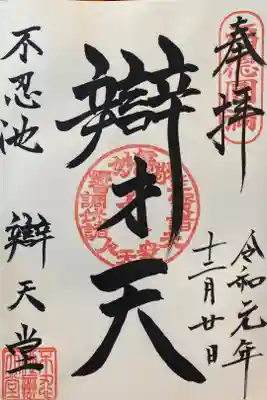 奉拝
令和元年
十二月廿日
辯才天
不忍池
辯天堂